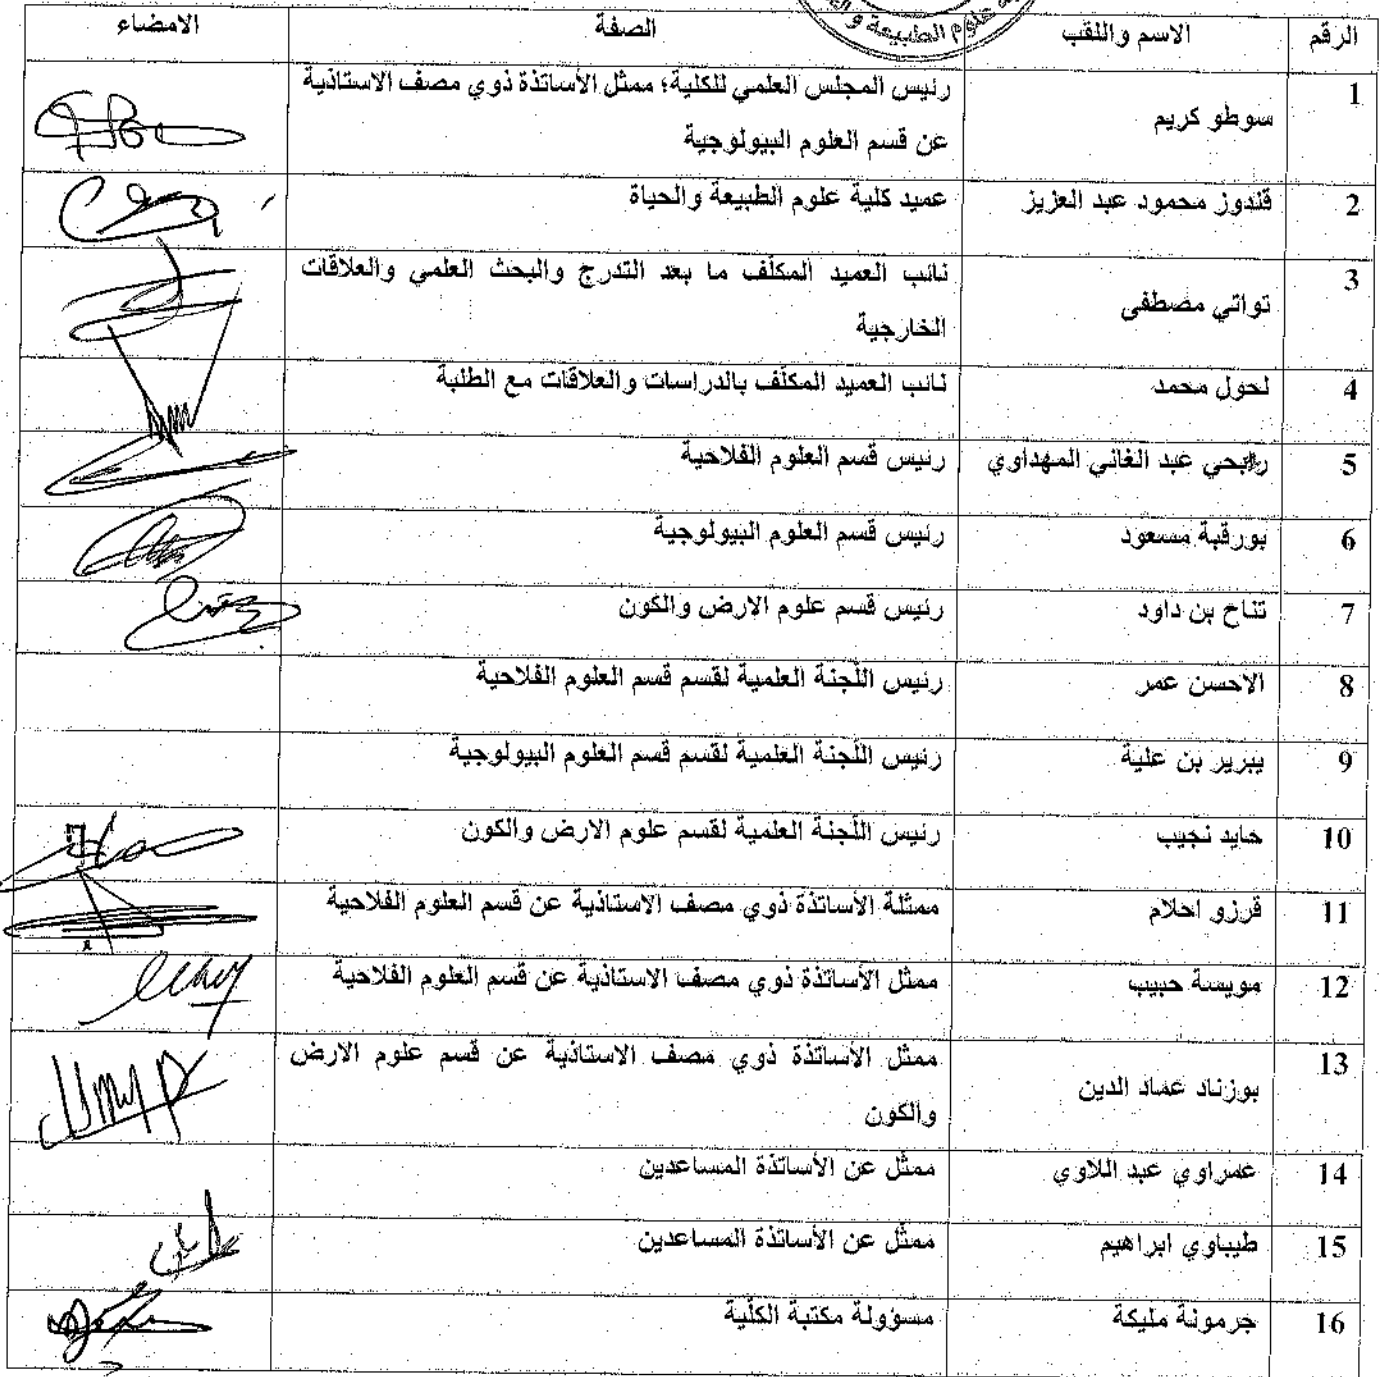 علوم الطبيعة و
الرقم الاسم واللقب الصفة الامضاء
1 سوطو كريم رئيس المجلس العلمي للكلية؛ ممثل الأساتذة ذوي مصف الاستاذية
عن قسم العلوم البيولوجية
2 قندوز محمود عبد العزيز عميد كلية علوم الطبيعة والحياة
3 تواتي مصطفى نائب العميد المكلّف ما بعد التدرج والبحث العلمي والعلاقات
الخارجية
4 لحول محمد نائب العميد المكلّف بالدراسات والعلاقات مع الطلبة
5 رابحي عبد الغاني المهداوي رئيس قسم العلوم الفلاحية
6 بورقبة مسعود رئيس قسم العلوم البيولوجية
7 تناح بن داود رئيس قسم علوم الارض والكون
8 الاحسن عمر رئيس اللّجنة العلمية لقسم قسم العلوم الفلاحية
9 يبرير بن علية رئيس اللّجنة العلمية لقسم قسم العلوم البيولوجية
10 حايد نجيب رئيس اللّجنة العلمية لقسم علوم الارض والكون
11 قرزو احلام ممثلة الأساتذة ذوي مصف الاستاذية عن قسم العلوم الفلاحية
12 مويسة حبيب ممثل الأساتذة ذوي مصف الاستاذية عن قسم العلوم الفلاحية
13 بوزناد عماد الدين ممثل الأساتذة ذوي مصف الاستاذية عن قسم علوم الارض
والكون
14 عمراوي عبد اللاوي ممثّل عن الأساتذة المساعدين
15 طيباوي ابراهيم ممثّل عن الأساتذة المساعدين
16 جرمونة مليكة مسؤولة مكتبة الكلّية